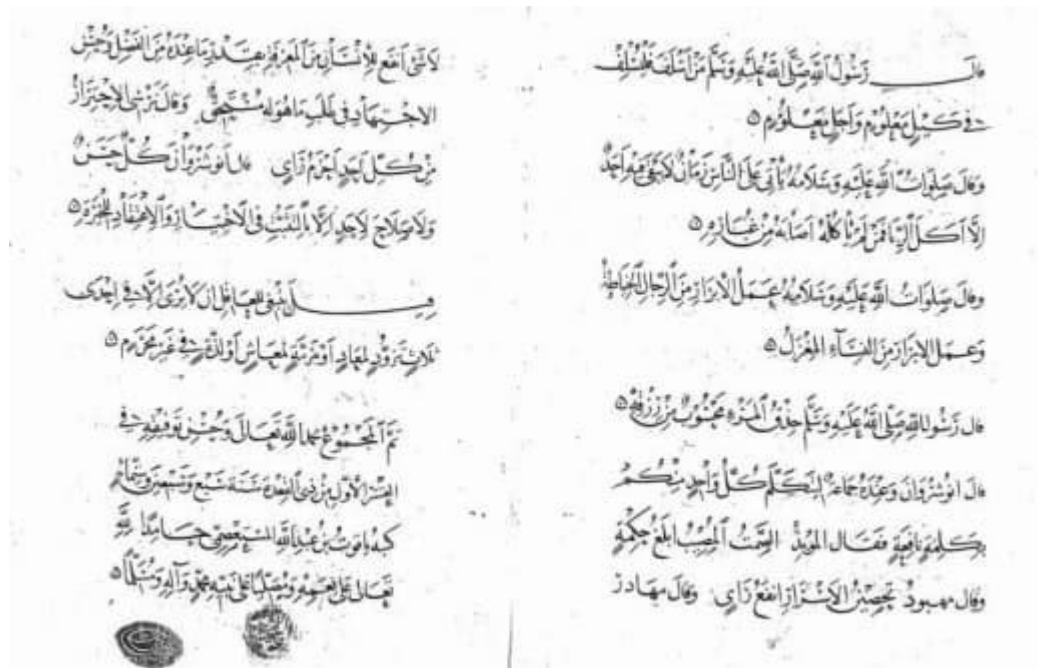 قال رسول الله صلى الله عليه وسلم من أسلف فليسلف
في كيل معلوم وأجل معلوم
وقال صلوات الله عليه وسلامه يأتي على الناس زمان لا يبقى فيه أحد
إلا أكل الربا فمن لم يأكله أصابه من غباره
وقال صلوات الله عليه وسلامه عمل الأبرار من الرجال الخياطة
وعمل الأبرار من النساء المغزل
قال رسول الله صلى الله عليه وسلم حذق المرء محسوب من رزقه
قال أنوشروان وعنده جماعة ليتكلم كل واحد منكم
بكلمة نافعة فقال الموبذ الصمت المصيب أبلغ حكمة
وقال مهبود تحصين الأسرار أنفع رأي وقال مهادر
لا شيء أنفع للإنسان من المعرفة بقدر ما عنده من الفضل وحسن
الاجتهاد في طلب ما هو له مستحق وقال نرسي الاحتراز
من كل أحد أحزم رأي قال أنوشروان كل حسن
ولا صلاح لأحد إلا بالتثبت في الاختيار والاعتقاد للخيرة
قيل ينبغي للعاقل أن لا يرى إلا في إحدى
ثلاث تزود لمعاد أو مرمة لمعاش أو لذة في غير محرم
تم المجموع بحمد الله تعالى وحسن توفيقه في
العشر الأول من ذي القعدة سنة سبع وتسعين وستمائة
كتبه ياقوت بن عبد الله المستعصمي حامدا لله
تعالى على نعمه ومصليا على نبيه محمد وآله ومسلما